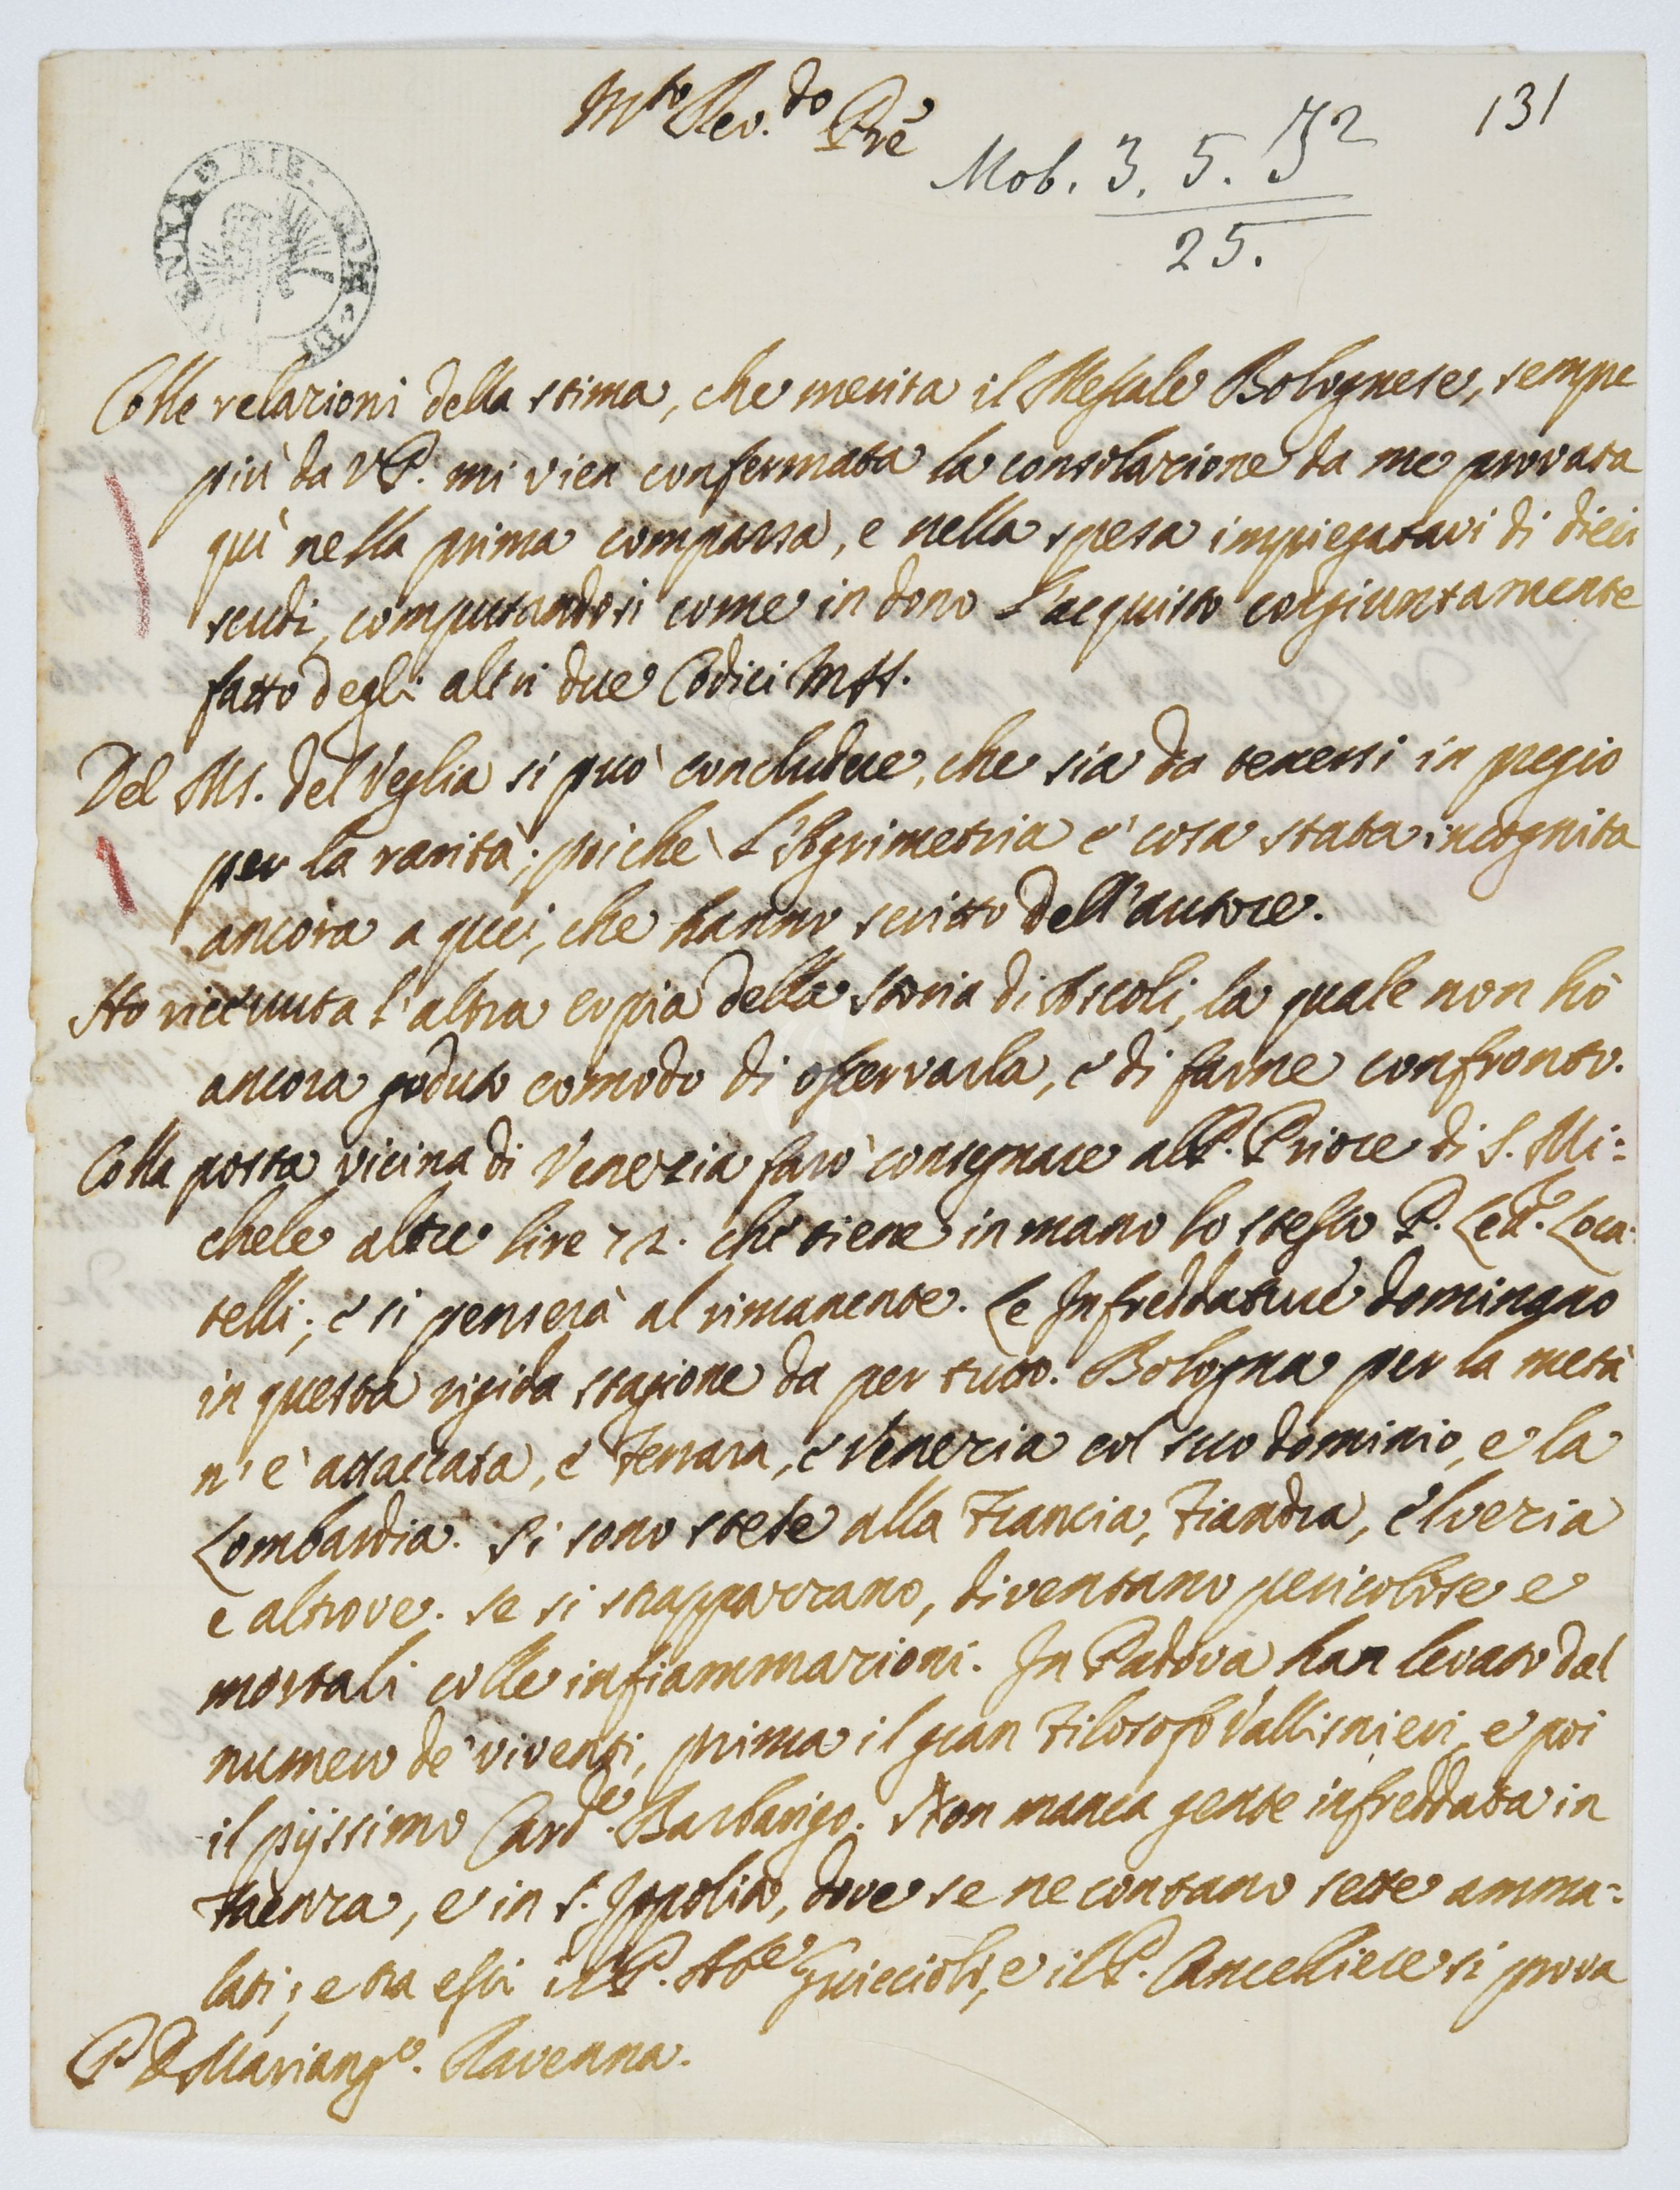 Mto Rev.do Pre
131
Mob. 3. 5. J2
25.
Colle relazioni della stima, che merita il Messale Bolognese, sempre
più da V.P. mi vien confermata la consolazione da me provata
quì nella prima comparsa, e nella spesa impiegatavi di dieci
scudi, computandosi come in dono l'acquisto congiuntamente
fatto degli altri due Codici Mss.
Del Ms. del Veglia si può concludere, che sia da tenersi in pregio
per la rarità; poichè l'Agrimetria è cosa stata incognita
ancora a quei, che hanno scritto dell'autore.
Ho ricevuta l'altra copia della Storia di Ascoli, la quale non hò
ancora goduto comodo di osservarla, e di farne confronto.
Colla posta vicina di Venezia farò consegnare al P. Priore di S. Mi=
chele altre lire 72. che tiene in mano lo stesso P. Lett.re Loca=
telli; e si penserà al rimanente. Le Infreddature dominano
in questa rigida stagione da per tutto. Bologna per la metà
n'è attaccata, e Ferrara, e Venezia col suo dominio, e la
Lombardia. Si sono stese alla Francia, Fiandra, Elvezia
e altrove. Se si strappazzano, diventano pericolose e
mortali colle infiammazioni. In Padova han levato dal
numero de' viventi, prima il gran Filosofo Vallisnieri, e poi
il pijssimo Card.e Barbarigo. Non manca gente infreddata in
Faenza, e in S. Ippolito, dove se ne contano sette amma=
lati; e tra essi il P. Abe Guiccioli, e il P. Cancelliere si prova
P. D. Mariang.o Ravenna.